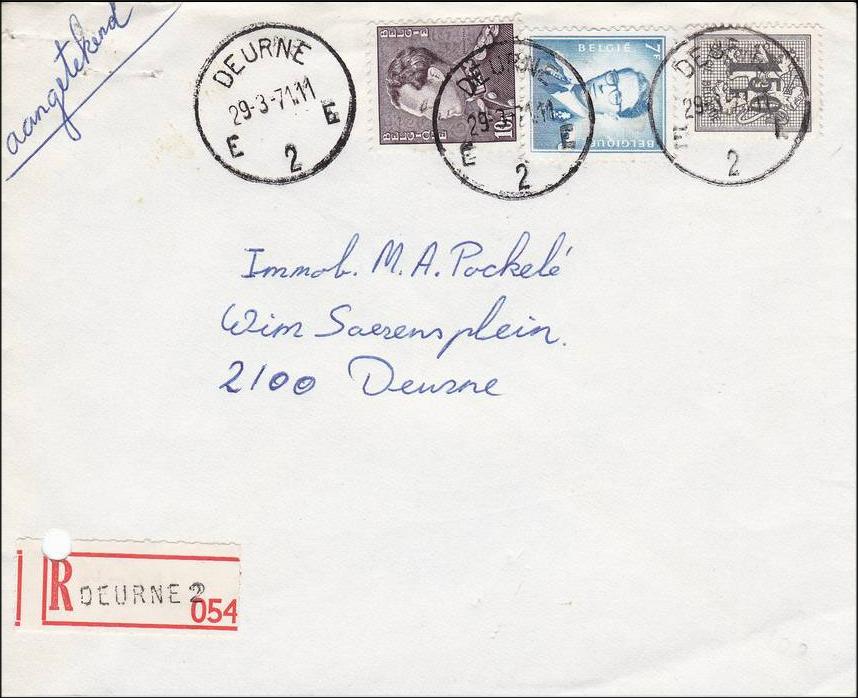 aangetekend
DEURNE
29-3-71.11
E E
2
BELGIE
10F
BELGIQUE
DEURNE
29-3-71.11
E E
2
BELGIË
7F
BELGIQUE
1F50
2
Immob. M. A. Pockelé
Wim Saerensplein.
2100 Deurne
R DEURNE 2
054